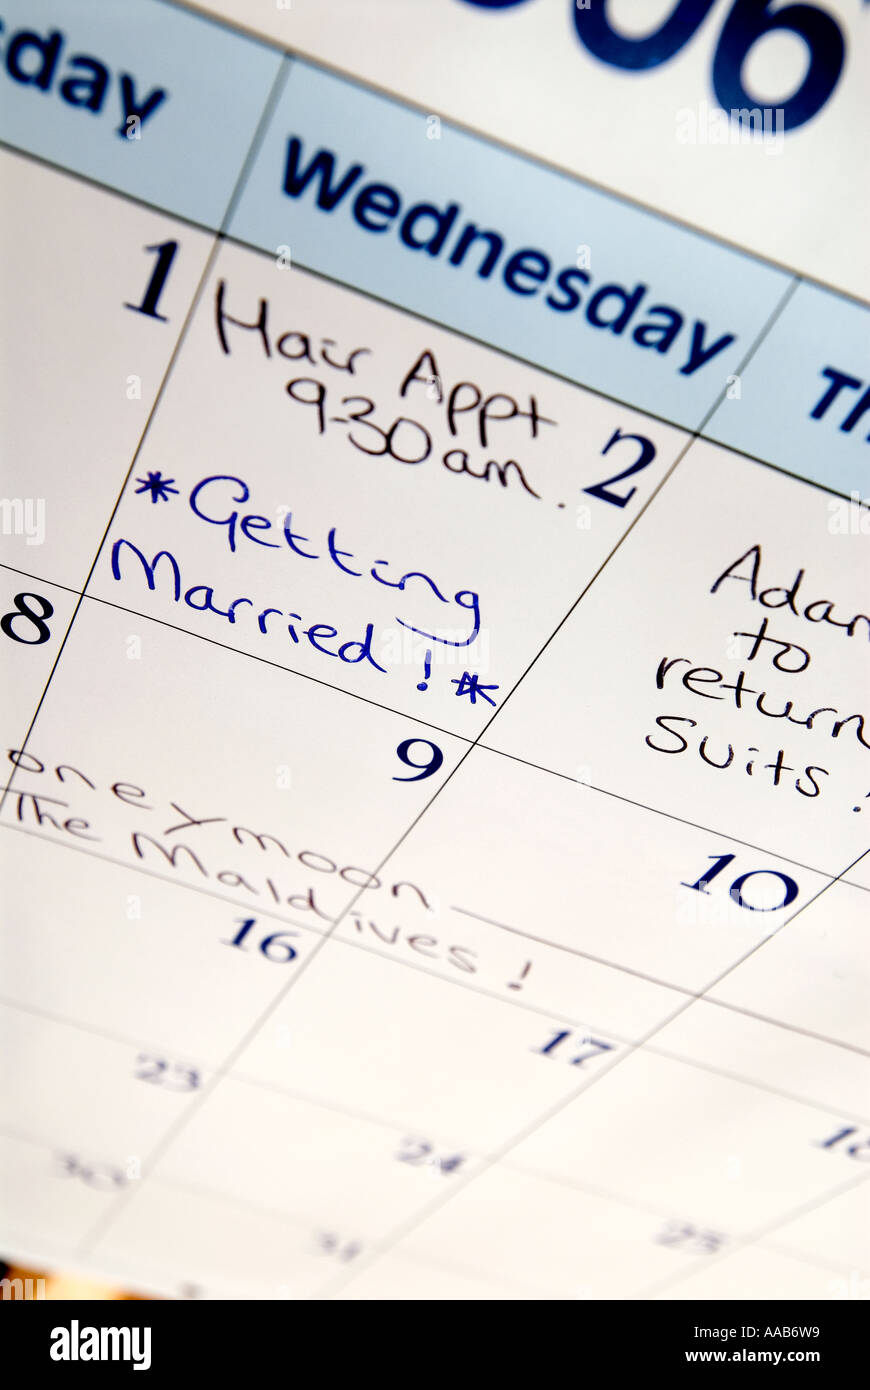 06
sday Wednesday Th
1 Hair Appt
9-30am. 2
*Getting
Married!*
Adam
to
return
suits!
8 9 10
oneymoon
The Maldives!
16 17 18
23 24 25
30 31
alamy
Image ID: AAB6W9
www.alamy.com